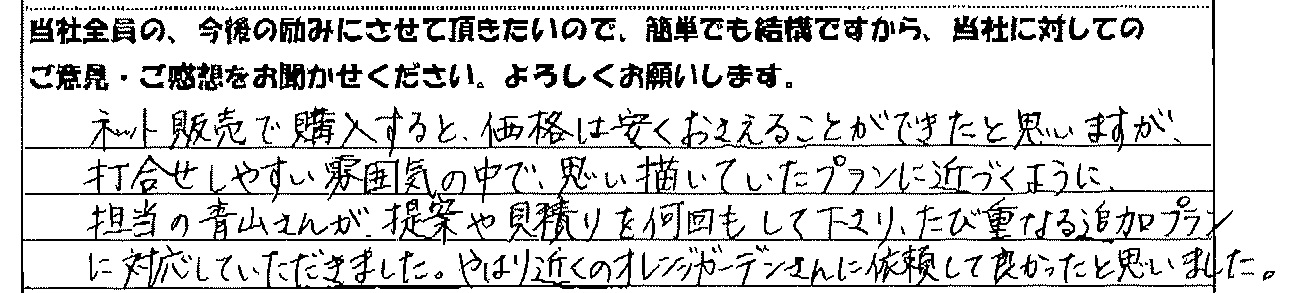 当社全員の、今後の励みにさせて頂きたいので、簡単でも結構ですから、当社に対しての
ご意見・ご感想をお聞かせください。よろしくお願いします。
ネット販売で購入すると、価格は安くおさえることができたと思いますが、
打合せしやすい雰囲気の中で、思い描いていたプランに近づくように、
担当の青山さんが、提案や見積りを何回もして下さり、たび重なる追加プラン
に対応していただきました。やはり近くのオレンジガーデンさんに依頼して良かったと思いました。